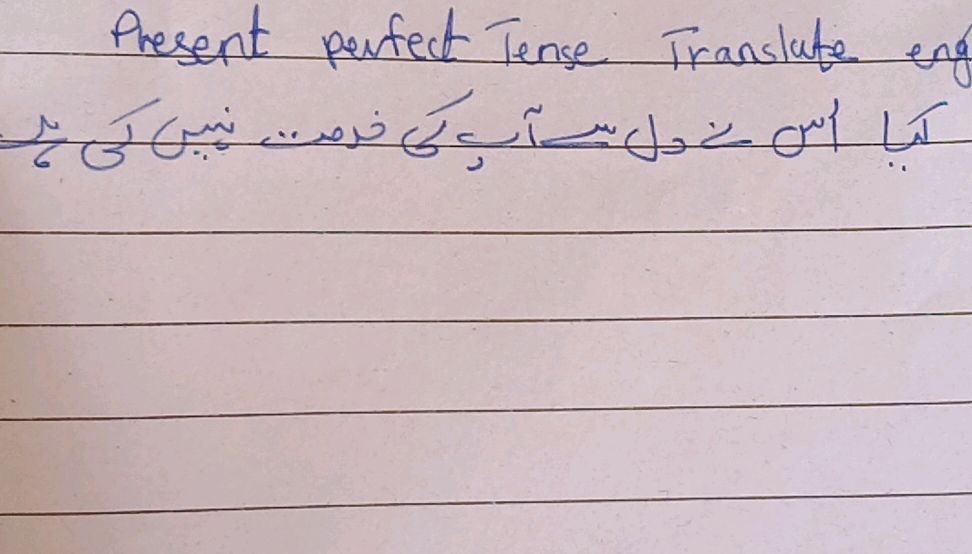 Present perfect Tense Translate eng
کیا اُس نے دل سے آپ کی خدمت نہیں کی ہے